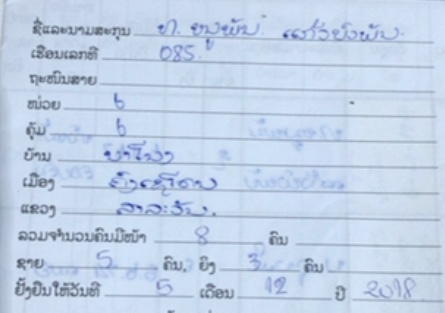 ຊື່ແລະນາມສະກຸນ ທ. ໜູພັນ ແກ້ວບົວພັນ
ເຮືອນເລກທີ 085.
ຖະໜົນສາຍ
ໜ່ວຍ 6
ຄຸ້ມ 6
ບ້ານ
ເມືອງ ຄົງເຊໂດນ
ແຂວງ ສາລະວັນ.
ລວມຈຳນວນຄົນມີໜ້າ 8 ຄົນ
ຊາຍ 5 ຄົນ, ຍິງ 3 ຄົນ
ຢັ້ງຢືນໃຫ້ວັນທີ 5 ເດືອນ 12 ປີ 2018